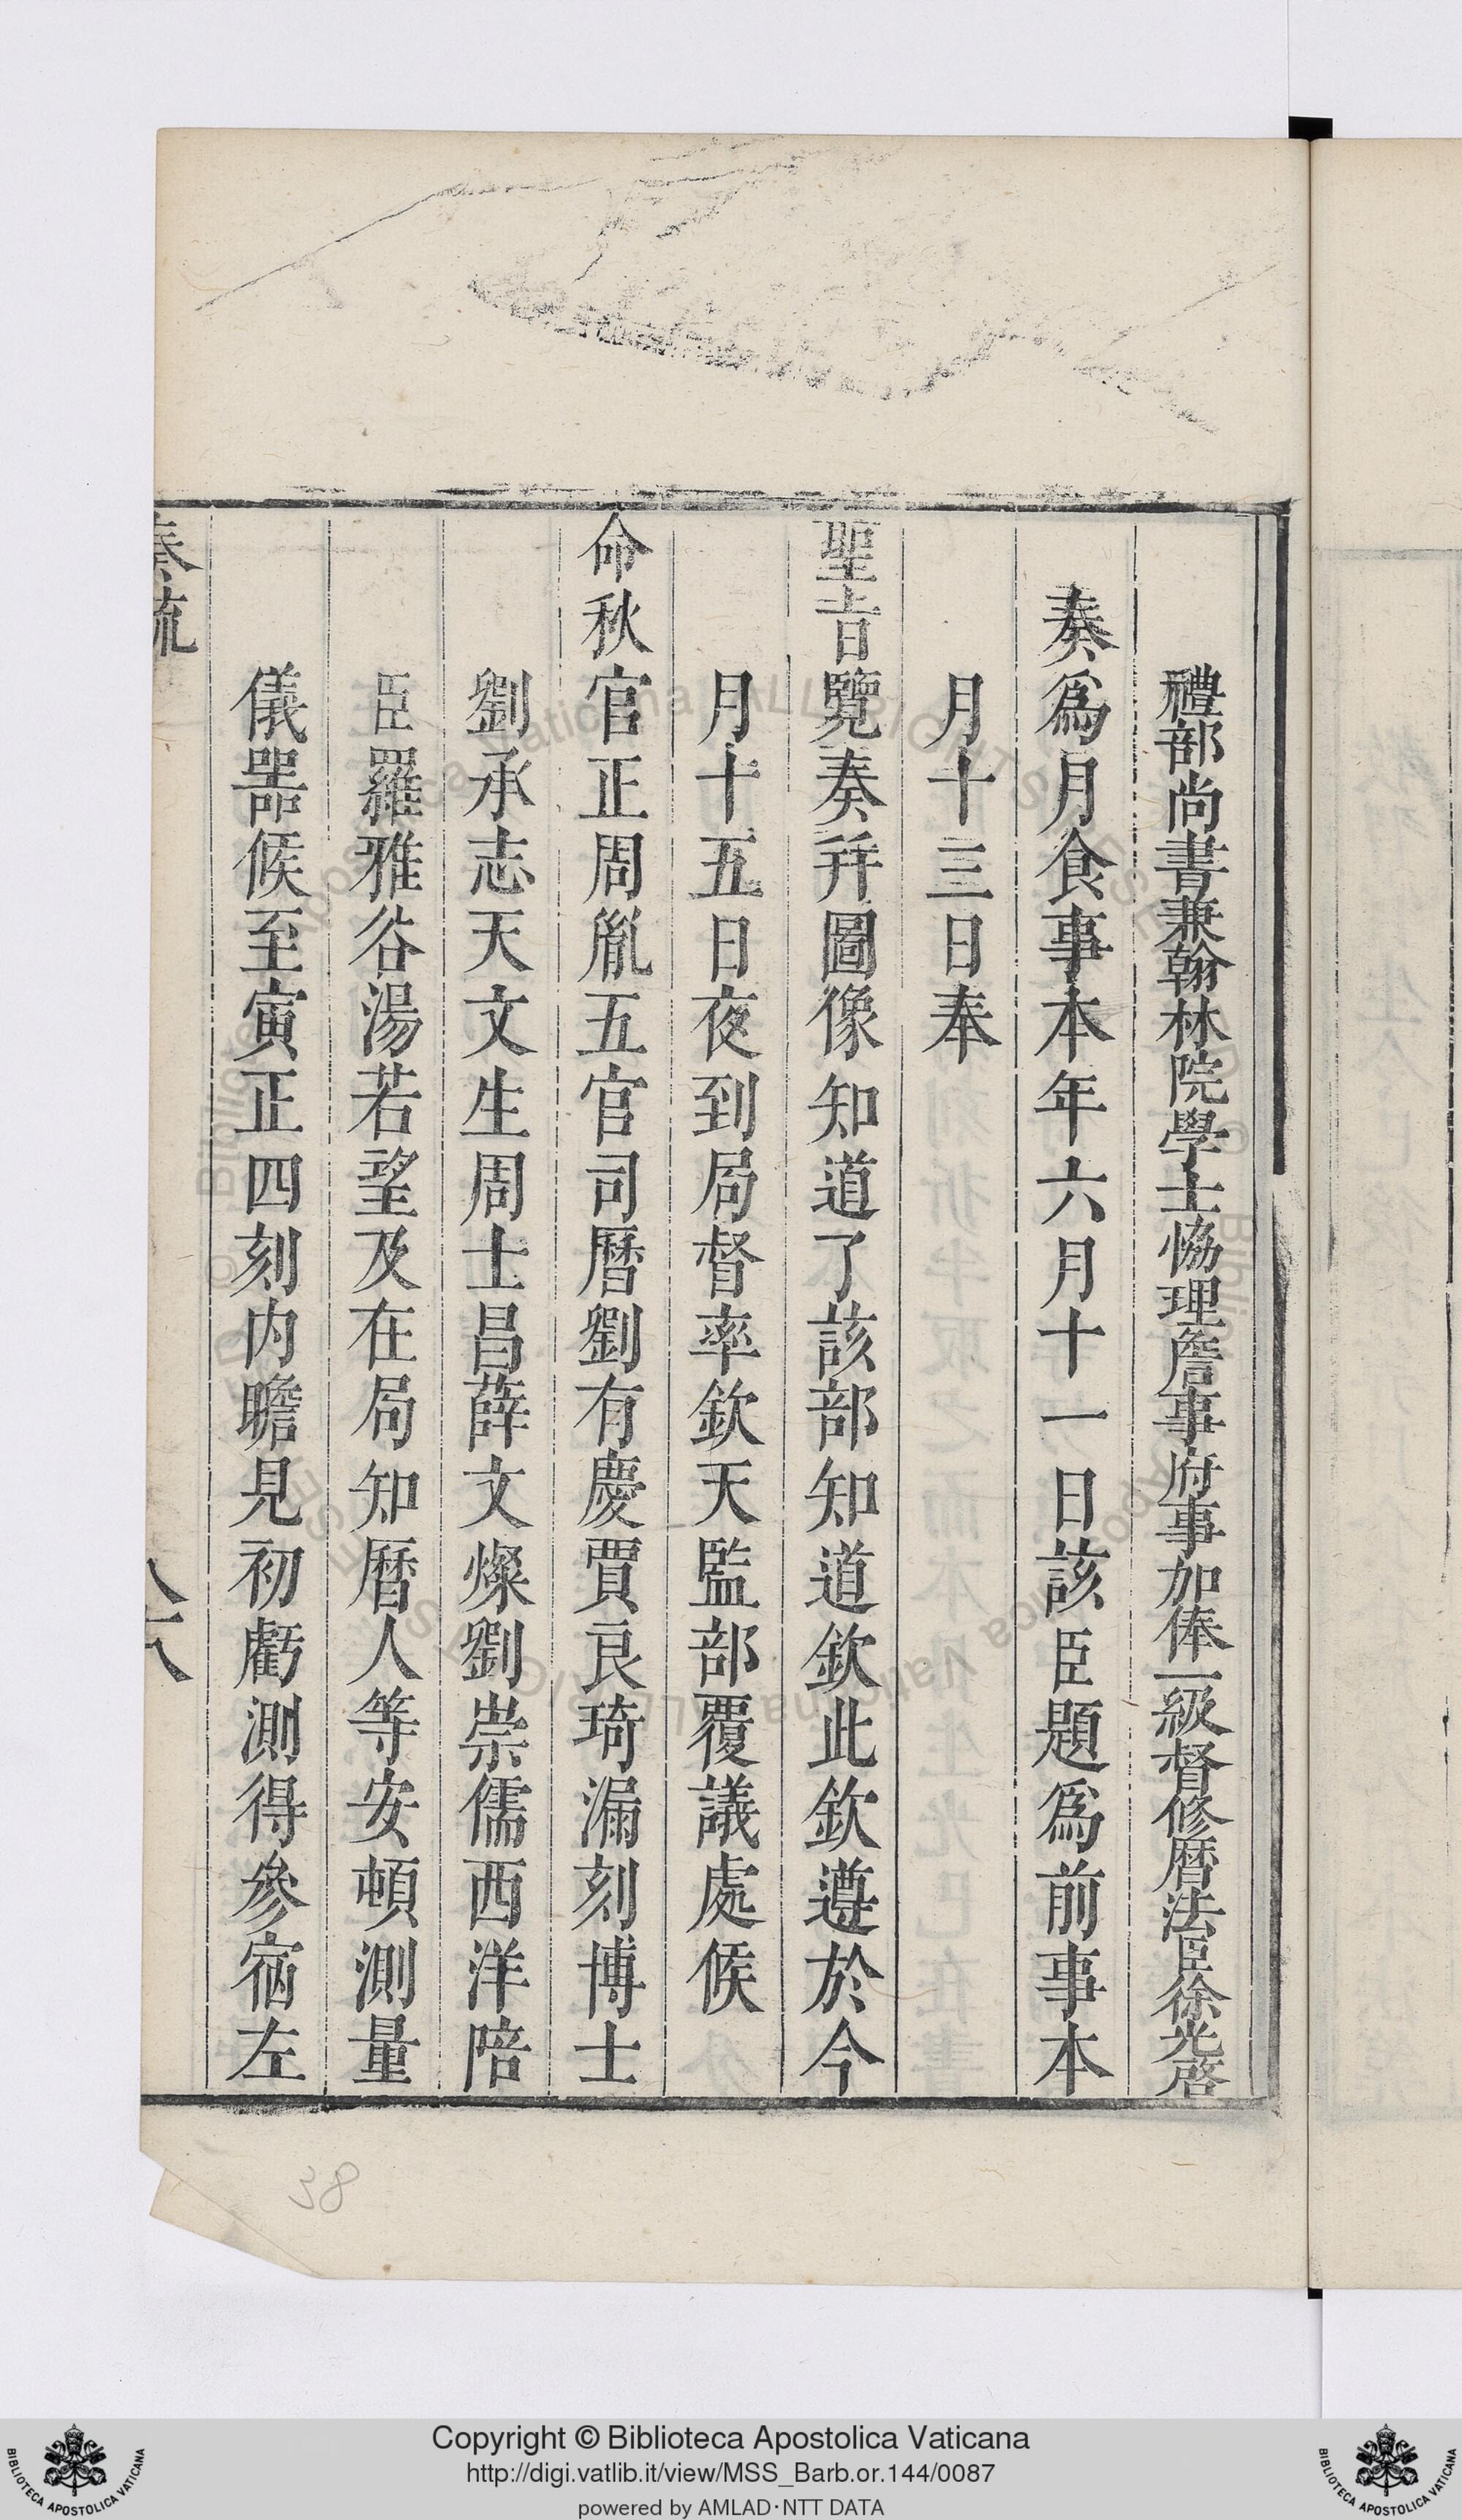 禮部尚書兼翰林院學士恊理詹事府事加俸一級督修曆法臣徐光啓
奏爲月食事本年六月十一日該臣題爲前事本
月十三日奉
聖旨覽奏并圖像知道了該部知道欽此欽遵於今
月十五日夜到局督率欽天監部覆議處候
命秋官正周胤五官司曆劉有慶賈良琦漏刻博士
劉承志天文生周士昌薛文燦劉崇儒西洋陪
臣羅雅谷湯若望及在局知曆人等安頓測量
儀器候至寅正四刻内瞻見初虧測得參宿左
奏疏
38
Copyright © Biblioteca Apostolica Vaticana
http://digi.vatlib.it/view/MSS_Barb.or.144/0087
powered by AMLAD·NTT DATA
BIBLIOTECA APOSTOLICA VATICANA
BIBLIOTECA APOSTOLICA VATICANA